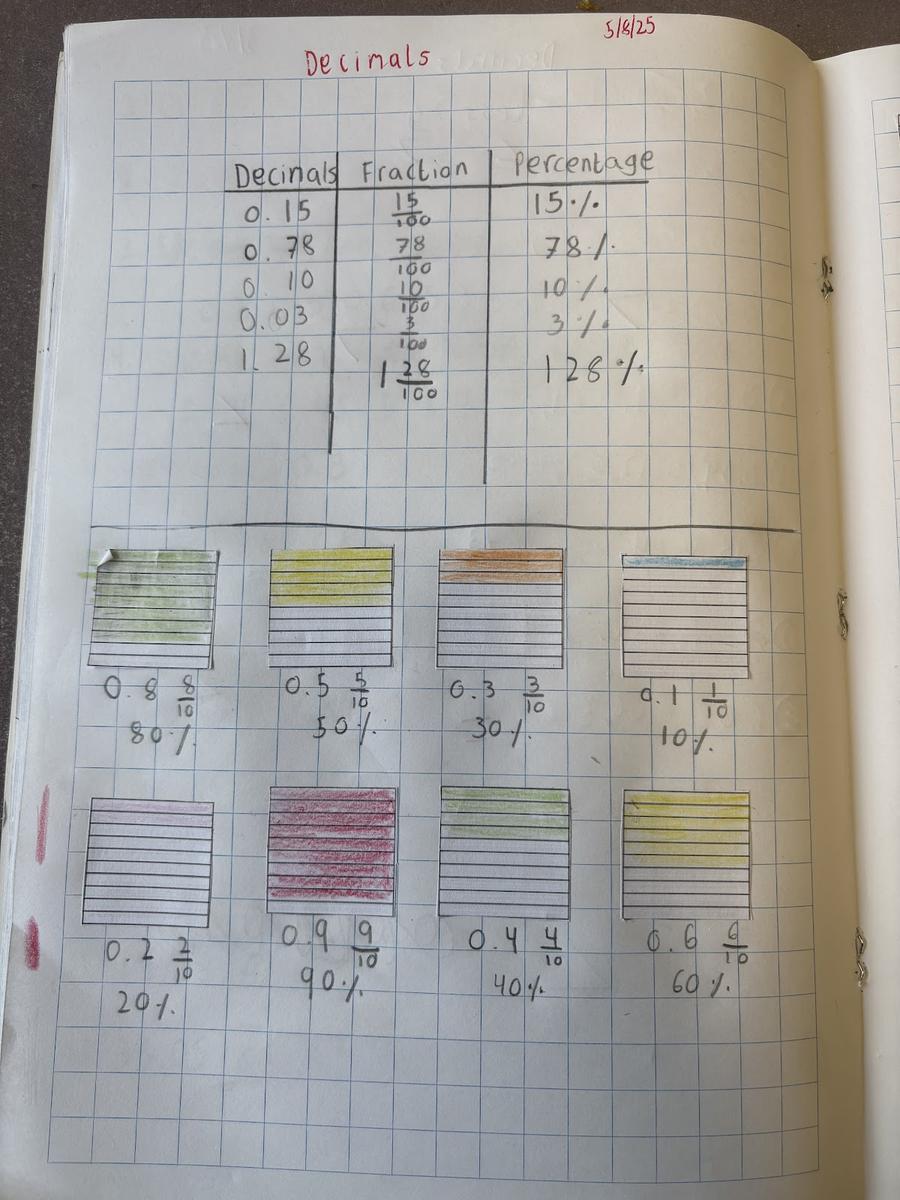 5/8/25
Decimals
Decinals Fraction Percentage
0.15 15/100 15%
0.78 78/100 78%
0.10 10/100 10%
0.03 3/100 3%
1.28 1 28/100 128%
0.8 8/10 0.5 5/10 0.3 3/10 0.1 1/10
80% 50% 30% 10%
0.2 2/10 0.9 9/10 0.4 4/10 0.6 6/10
20% 90% 40% 60%